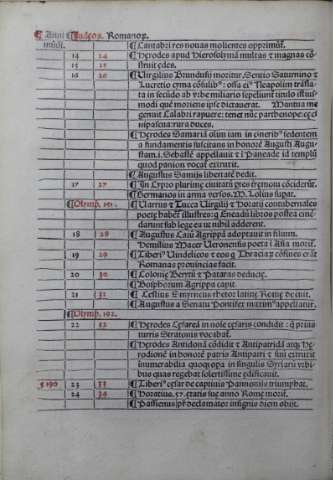 Anni Iudeoꝝ. Romanoꝝ.
mūdi. ¶Cantabri res nouas molientes opprimūt.
14 24 ¶Herodes apud Hierosolymā multas et magnas cō
struit ędes.
15 25
16 26 ¶Virgilius Brundusij moritur, Sentio Saturnino et
Lucretio cynna cōsulibꝰ: ossa eiꝰ Neapolim trāsla
ta in secūdo ab vrbe miliario sepeliunt titulo istius
modi quē moriens ipse dictauerat. Mantua me
genuit Calabri rapuere: tenet nūc parthenope: ceci
ni pascua: rura: duces.
¶Herodes Samariā olim iam in cinerē sedentem
a fundamentis suscitans in honorē Augusti Augu
stam.i. Sebastē appellauit et Paneade id templū
quod panion vocat extruit.
¶Augustus Samijs libertatē dedit.
17 27 ¶In Cypro plurimę ciuitatū pres tręmotu cōciderūt.
¶Germanos in arma versos. M. Lolius supat.
¶Olymp. 191. ¶Varius et Tucca Virgilij et Horatij contubernales
poetę habent illustres: qui Eneadū libros postea emē
darunt sub lege ea ut nihil adderent.
18 28 ¶Augustus Caiū Agrippā adoptauit in filium.
¶Aemilius Macer Veronensis poeta in Asia morit.
19 29 ¶Tiberiꝰ Vindelicos et eos qui Thraciaꝝ cōfines erāt
Romanas prouincias facit.
20 30 ¶Colonię Beryti et Patras deducte.
¶Bosphorum Agrippa capit.
21 31 ¶Cestius Smyrneus rhetor latine Romę docuit.
¶Augustus a Senatu Pontifex maximꝰ appellatur.
¶Olymp. 192.
22 32 ¶Herodes Cesareā in nomine cęsaris condidit: q prius
turris Stratonis vocabat.
¶Herodes Antidonā cōdidit et Antipatridā atqꝫ He
rodionē in honorē patris Antipatri et sui extruxit
innumerabilia quoqꝫ opa in singulis Syriaꝝ vrbi
bus quas regebat solertissime edificauit.
5190 23 33 ¶Tiberiꝰ cęsar de captiuis Pannonijs triumphat.
24 34 ¶Horatius.57. ętatis suę anno Romę morit.
¶Passienus pater declamator insignis diem obijt.